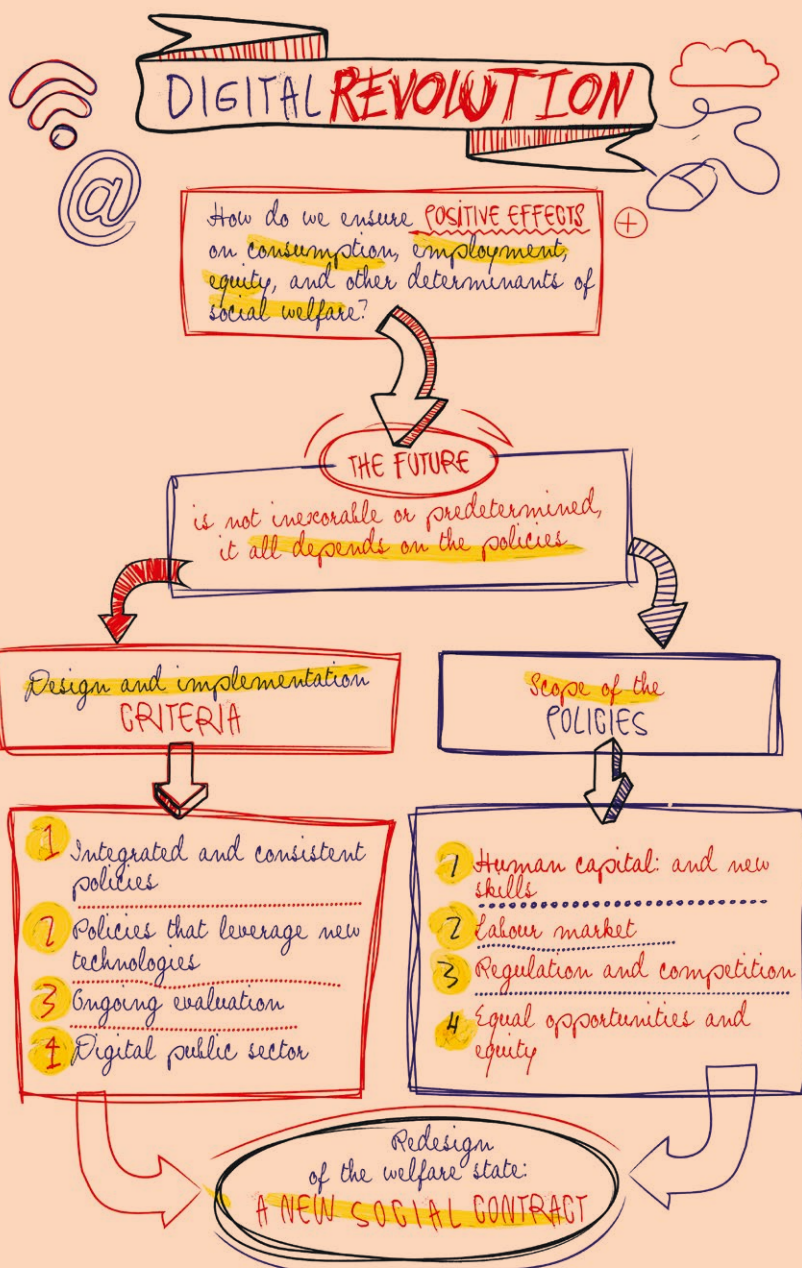 DIGITAL REVOLUTION
@
How do we ensure POSITIVE EFFECTS
on consumption, employment,
equity, and other determinants of
social welfare?
+
THE FUTURE
is not inexorable or predetermined,
it all depends on the policies
Design and implementation
CRITERIA
1 Integrated and consistent
policies
2 Policies that leverage new
technologies
3 Ongoing evaluation
4 Digital public sector
Scope of the
POLICIES
1 Human capital: and new
skills
2 Labour market
3 Regulation and competition
4 Equal opportunities and
equity
Redesign
of the welfare state:
A NEW SOCIAL CONTRACT